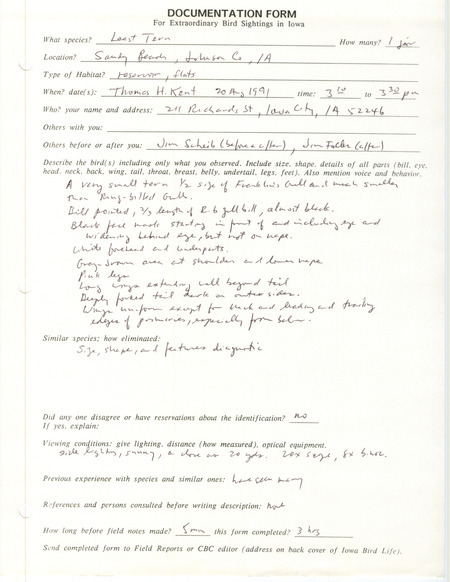 DOCUMENTATION FORM
For Extraordinary Bird Sightings in Iowa
What species? Least Tern How many? 1 juv
Location? Sandy Beach, Johnson Co, IA
Type of Habitat? reservoir, flats
When? date(s): Thomas H. Kent 20 Aug 1991 time: 3 10 to 3 30 pm
Who? your name and address: 211 Richards St, Iowa City, IA 52246
Others with you:
Others before or after you: Jim Scheib (before & after), Jim Fuller (after)
Describe the bird(s) including only what you observed. Include size, shape, details of all parts (bill, eye,
head, neck, back, wing, tail, throat, breast, belly, undertail, legs, feet). Also mention voice and behavior.
A very small tern 1/2 size of Franklin's Gull and much smaller
than Ring-billed Gulls.
Bill pointed, 2/3 length of R-b gull bill, almost black.
Black face mask starting in front of and including eye and
widening behind eye, but not on nape.
White forehead and underparts.
Gray-brown area at shoulder and lower nape
Pink legs
Long wings extending well beyond tail
Deeply forked tail dark on outer sides.
Wings uniform except for black and leading and trailing
edges of primaries, especially from below.
Similar species; how eliminated:
Size, shape, and features diagnostic
Did any one disagree or have reservations about the identification? no
If yes, explain:
Viewing conditions: give lighting, distance (how measured), optical equipment.
side lighting, sunny, as close as 20 yds. 20x scope, 8x binoc.
Previous experience with species and similar ones: have seen many
References and persons consulted before writing description: none
How long before field notes made? 5 min this form completed? 3 hrs
Send completed form to Field Reports or CBC editor (address on back cover of Iowa Bird Life).